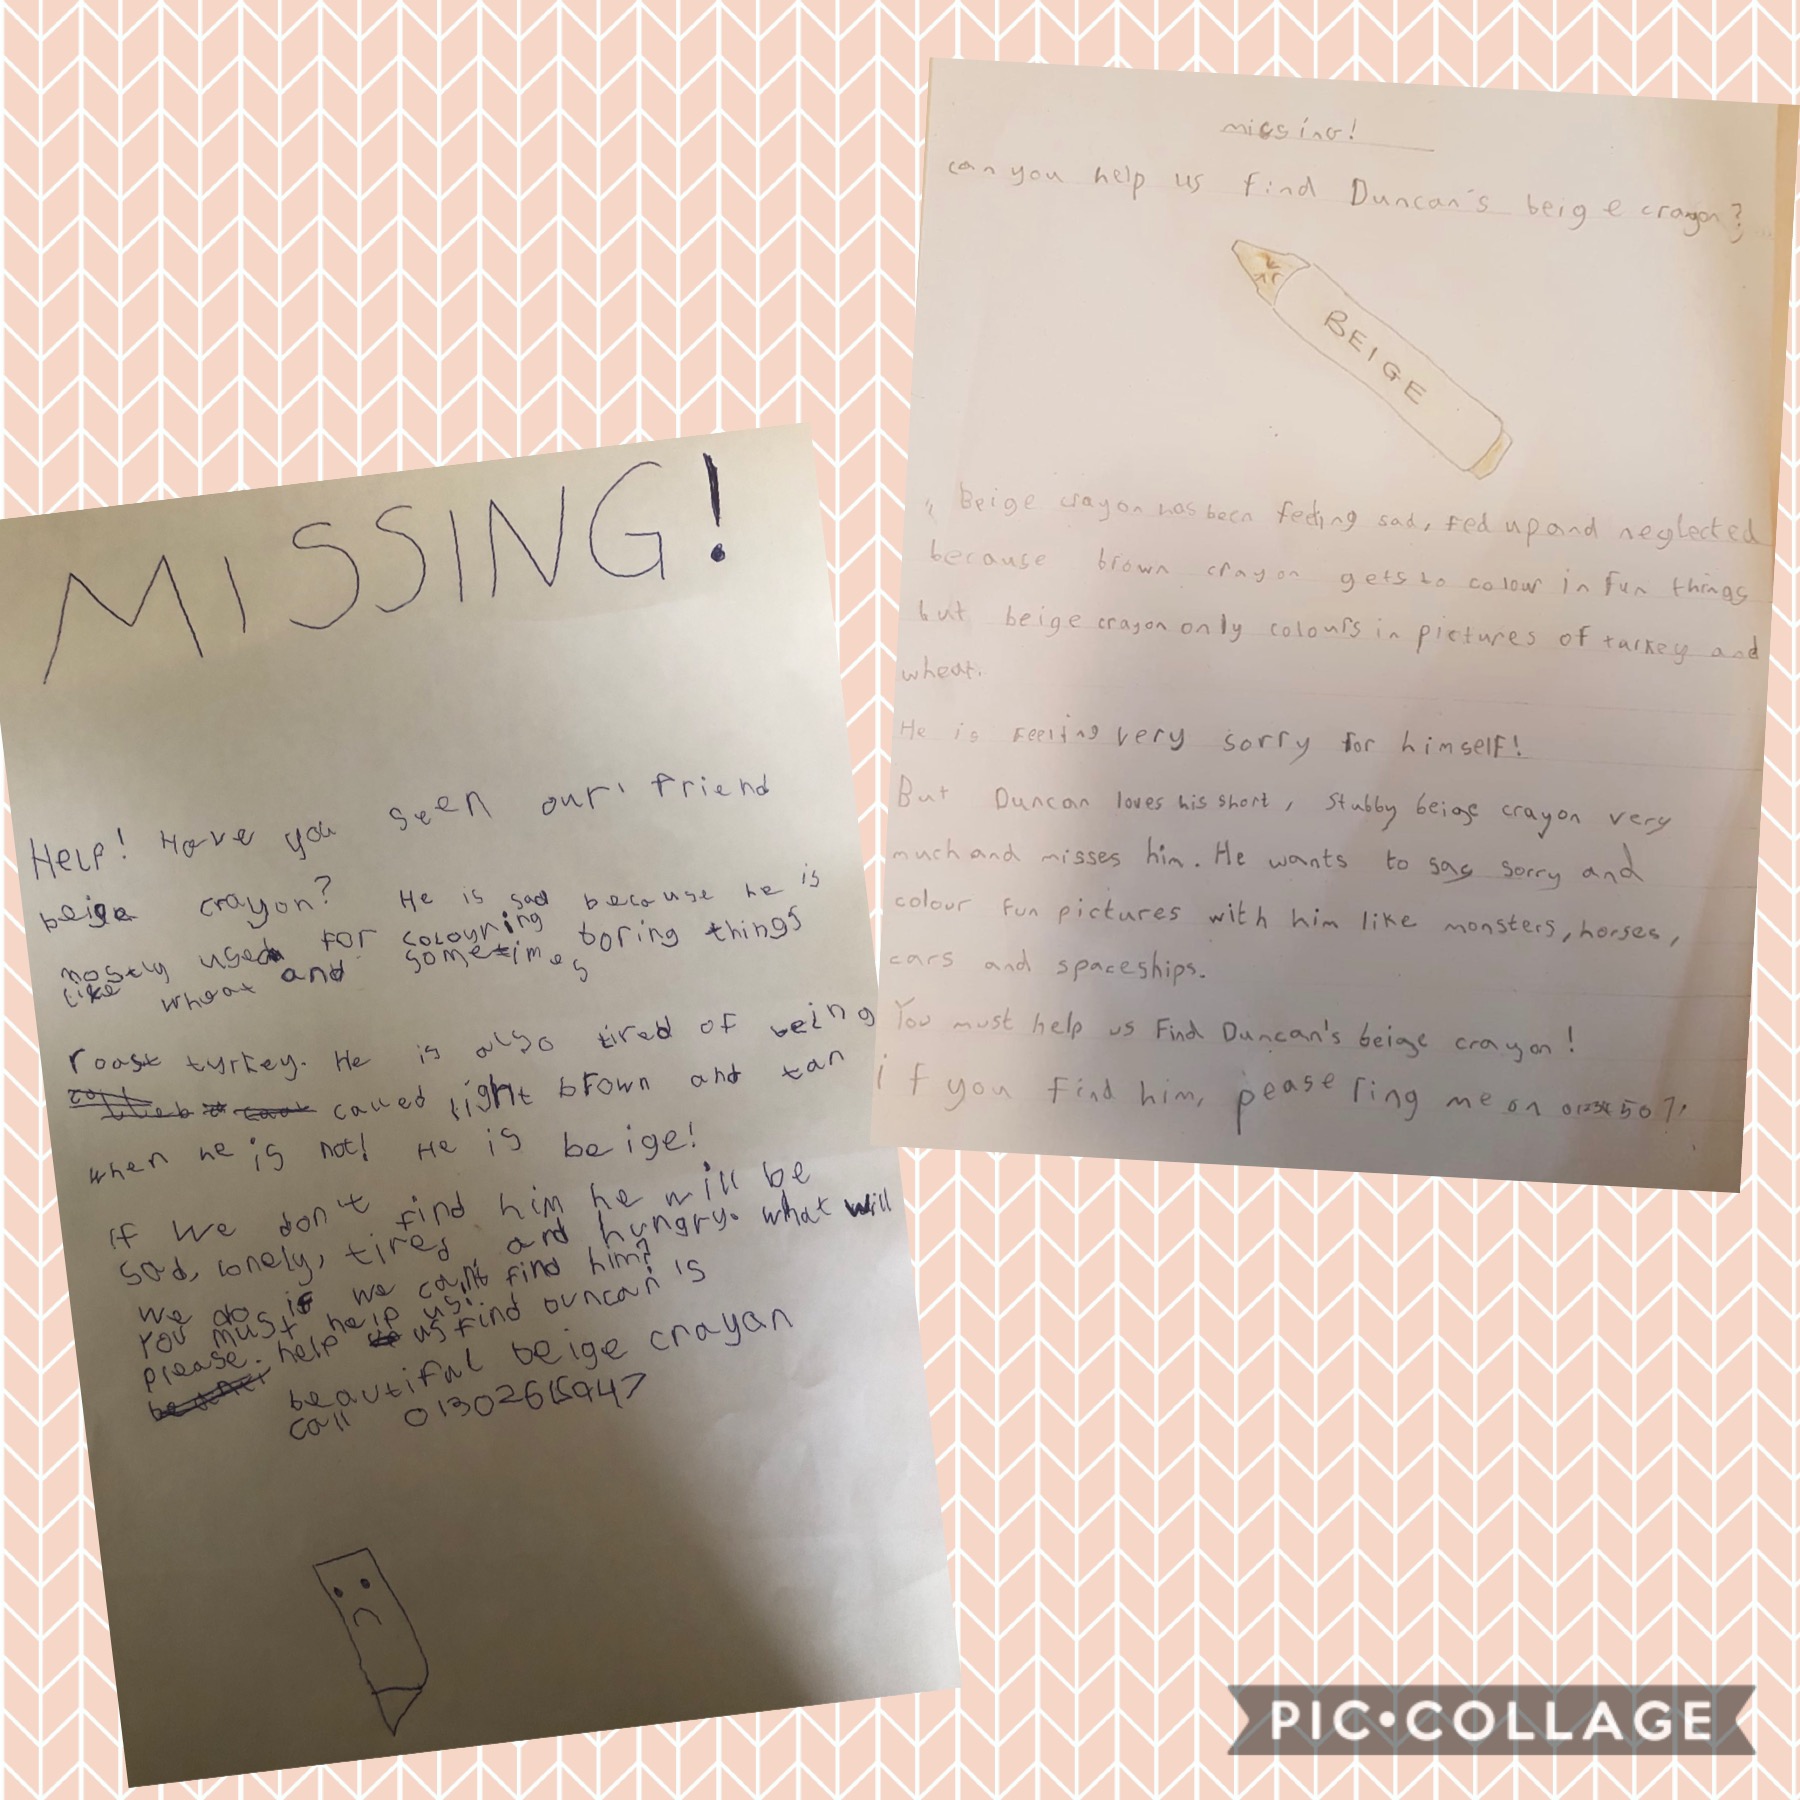 MISSING!
Help! Have you seen our friend
beige crayon? He is sad because he is
mostly used for colouring boring things
like wheat and sometimes
roast turkey. He is also tired of being
called light brown and tan
when he is not! He is beige!
if we don't find him he will be
sad, lonely, tired and hungry. what will
we do if we can't find him?
You must help us.
please. help us find Duncan is
beautiful beige crayan
call
missing!
can you help us find Duncan's beige crayon?
BEIGE
Beige crayon has been feeling sad, fed up and neglected
because brown crayon gets to colour in fun things
but beige crayon only colours in pictures of turkey and
wheat.
He is feeling very sorry for himself!
But Duncan loves his short, stubby beige crayon very
much and misses him. He wants to say sorry and
colour fun pictures with him like monsters, horses,
cars and spaceships.
You must help us find Duncan's beige crayon!
if you find him, pease ring me on
PIC•COLLAGE